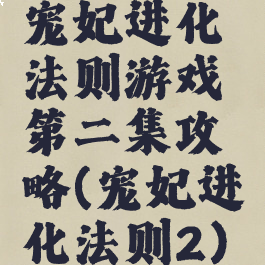 宠妃进化
法则游戏
第二集攻
略(宠妃进
化法则2)